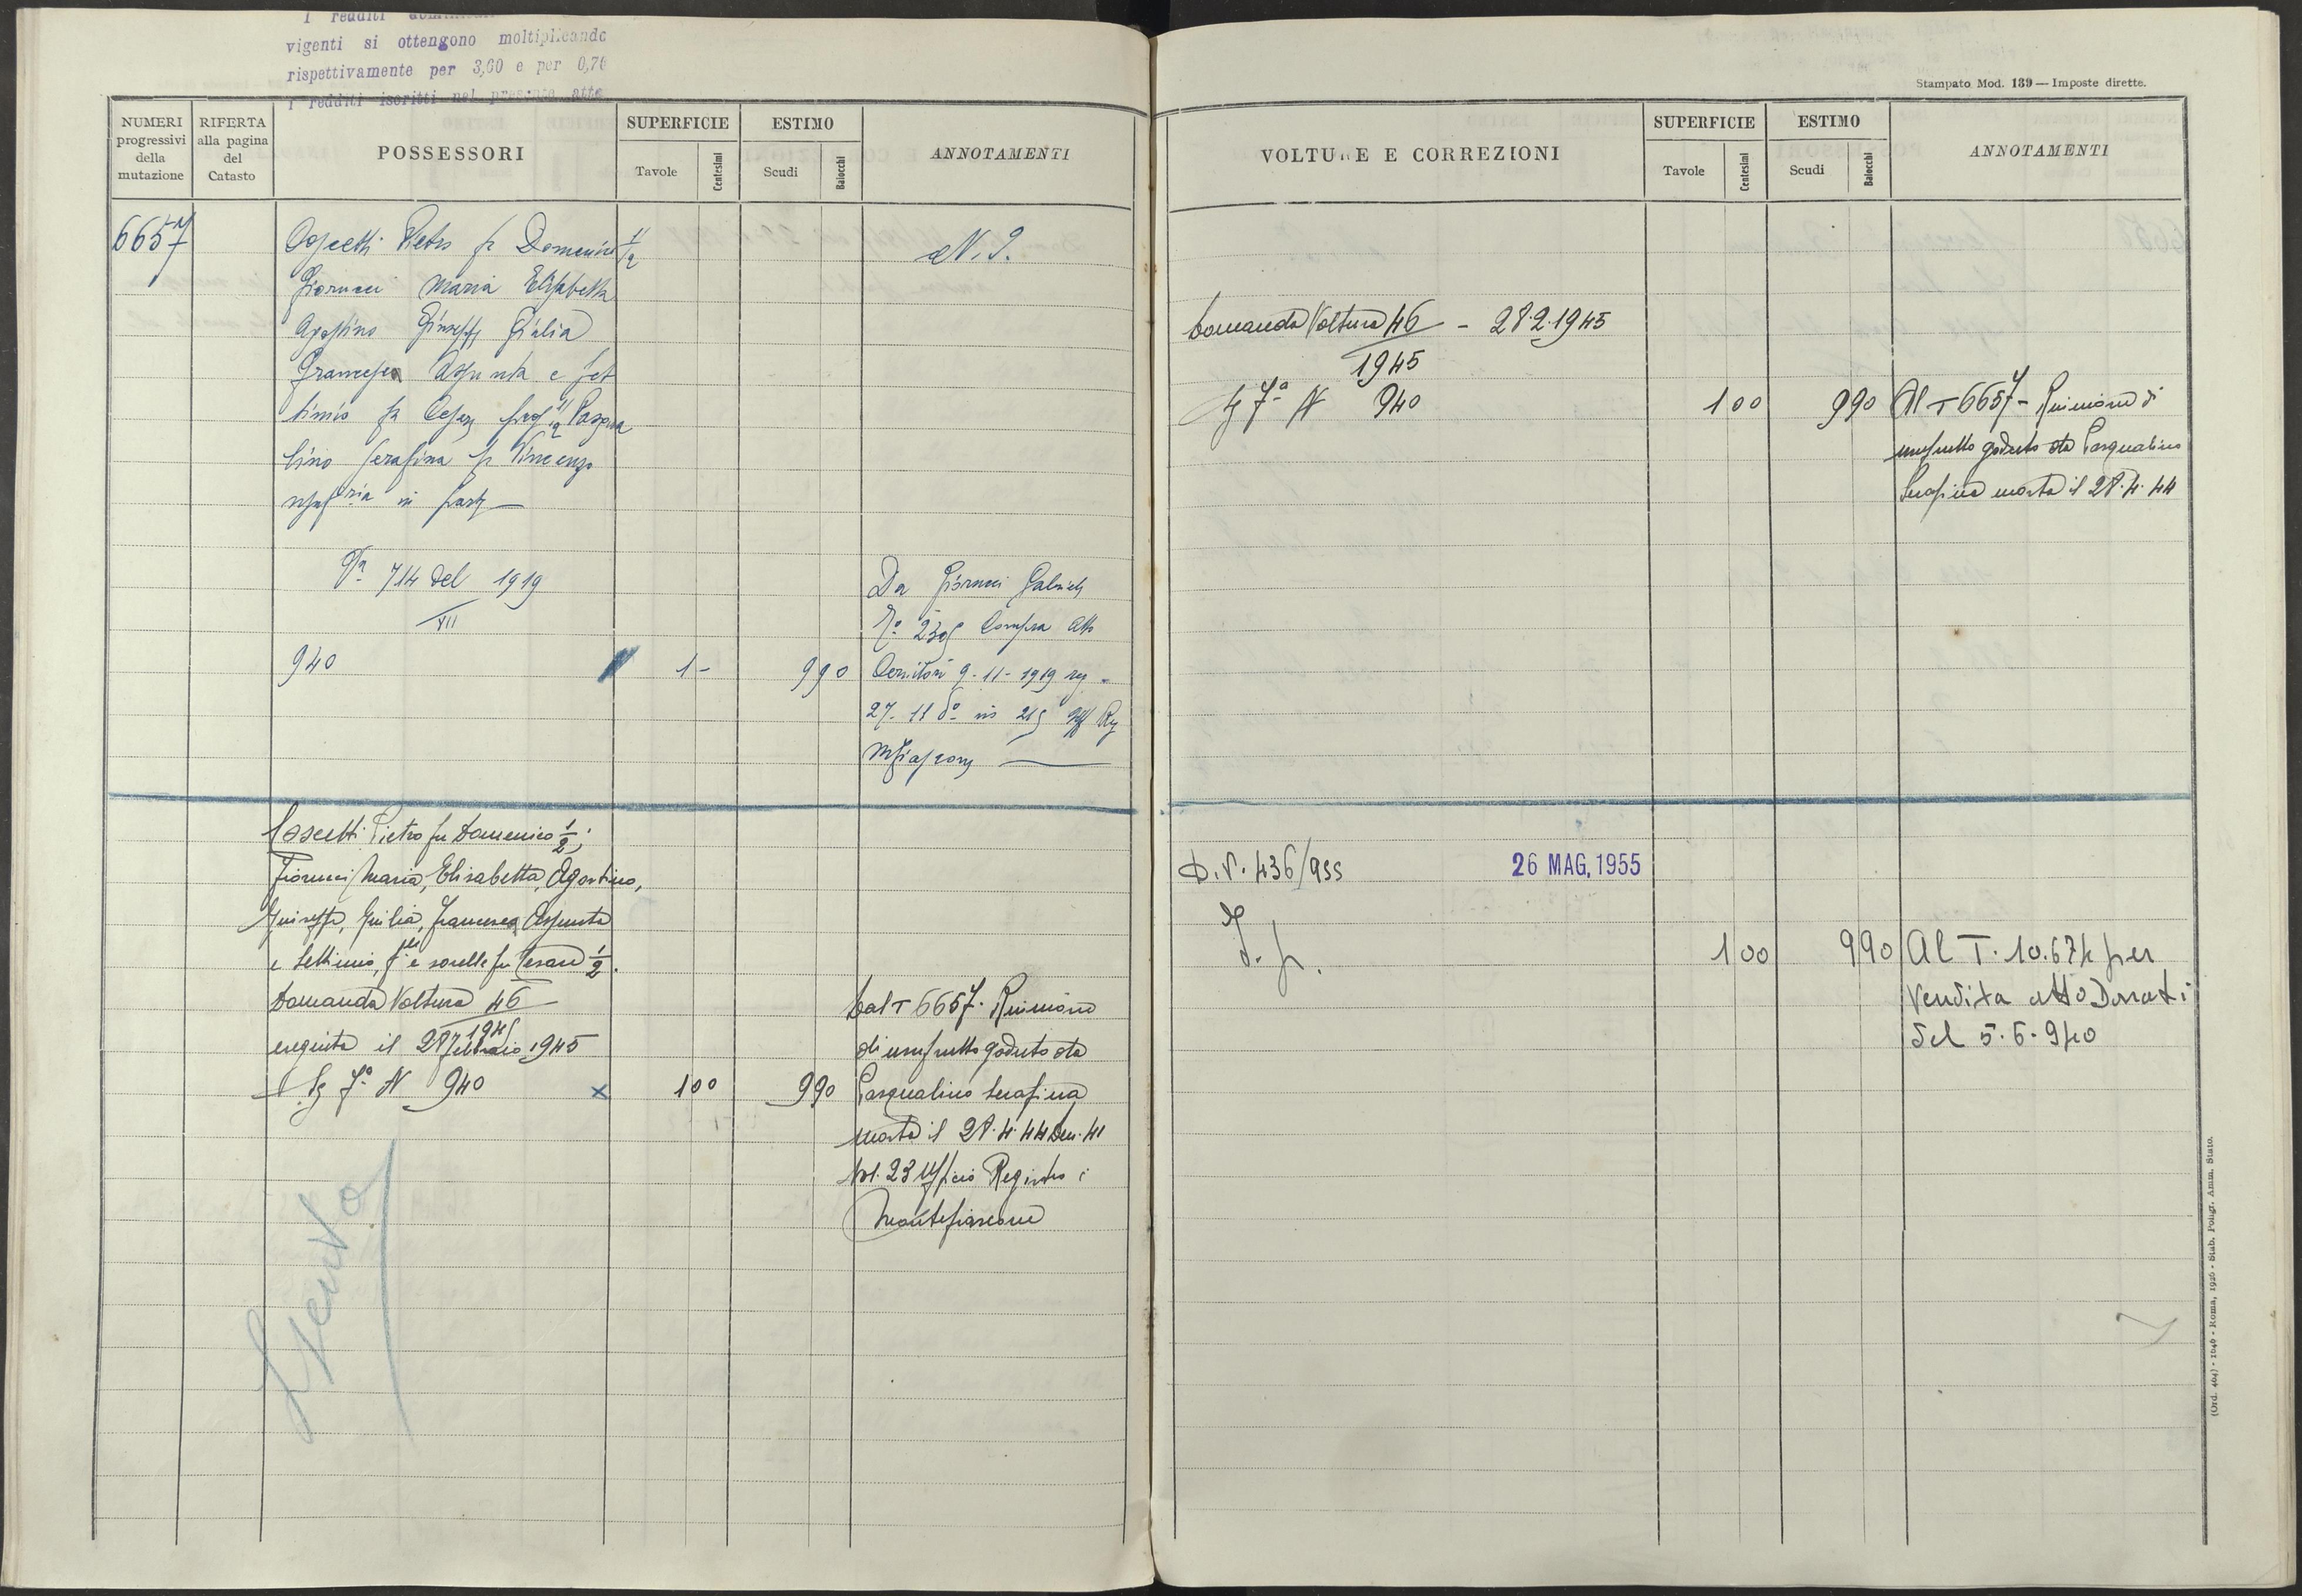 vigenti si ottengono moltiplicando
rispettivamente per 3,60 e per 0,70
i redditi iscritti nel presente atto
NUMERI progressivi della mutazione
RIFERTA alla pagina del Catasto
POSSESSORI
SUPERFICIE
Tavole
Centesimi
ESTIMO
Scudi
Baiocchi
ANNOTAMENTI
6657
Coscetti Pietro fu Domenico 1/2
Fiorucci Maria Elisabetta
Agostino Giuseppe Giulia
Francesca Assunta e Set
timio fu Cesare 1/2 Pasqua
lino Serafina fu Vincenzo
in parte
N. 9.
Va 714 del 1919
VII
940
1-
990
Da Fiorucci
Compra Atto
9-11-1919 reg
27-11
Mfiascone
Coscetti Pietro fu Domenico 1/2;
Fiorucci Maria, Elisabetta, Agostino,
Giuseppe, Giulia, Francesca Assunta
e Settimio, f.lli e sorelle fu Cesare 1/2.
Domanda Voltura 46
1945
eseguita il 28 Febbraio 1945
7a N 940 x
100
990
Dal T 6657. Riunione
di usufrutto goduto da
Pasqualino Serafina
morta il 28.4.44 Den. 41
Vol. 23 Ufficio Registro
Montefiascone
Esente
Stampato Mod. 139 — Imposte dirette.
VOLTURE E CORREZIONI
SUPERFICIE
Tavole
Centesimi
ESTIMO
Scudi
Baiocchi
ANNOTAMENTI
Domanda Voltura 46 - 28.2.1945
1945
7a N 940
100
990
Al T 6657 - Riunione di
usufrutto goduto da Pasqualino
Serafina morta il 28.4.44
D.V. 436/955
26 MAG. 1955
100
990
Al T. 10.674 per
Vendita atto Donati
del 5.6.940
(Ord. 404) - 1646 - Roma, 1926 - Stab. Poligr. Amm. Stato.